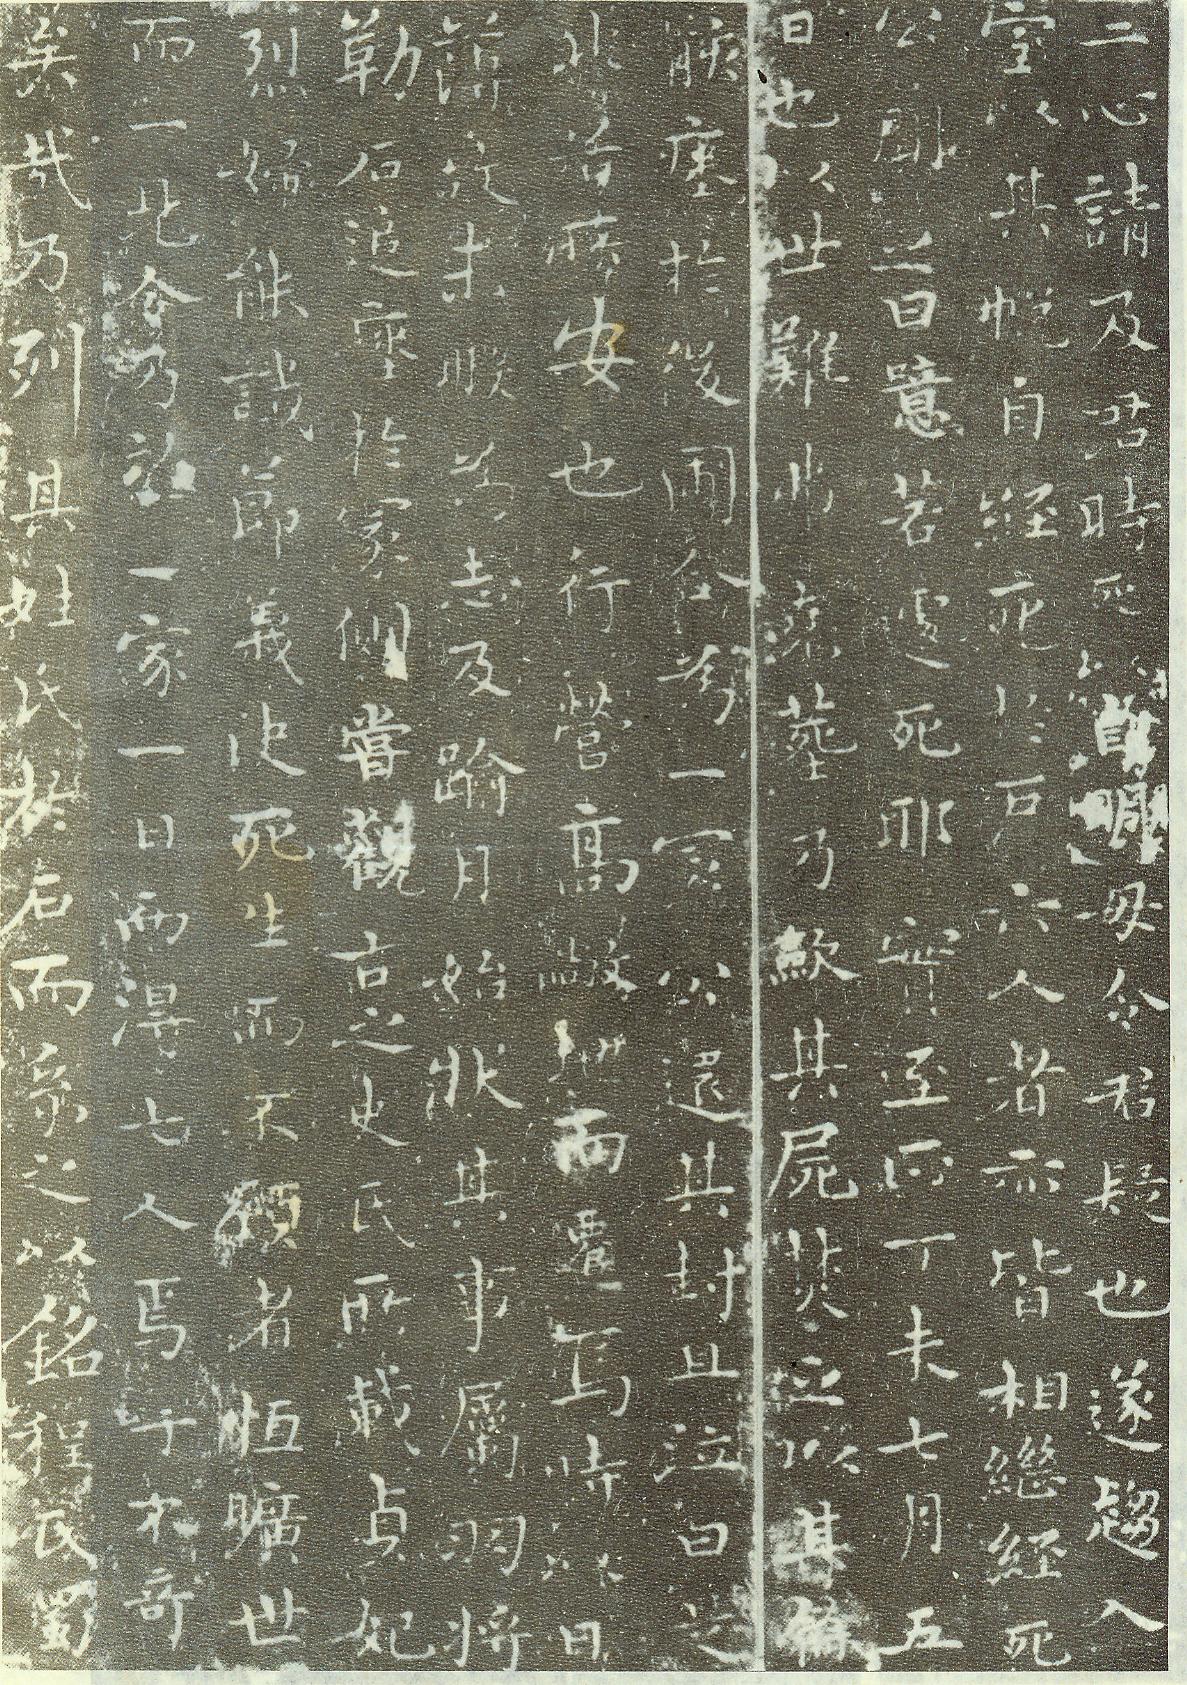 二心請及君時死以報毋令君疑也遂趨入
室以其帨自經死於戶六人者亦皆相繼經死
公聞之曰噫若遽死耶實至正丁未七月五
日也以世難弗葬乃歛其屍焚之以其
骸瘞於後圃合為一冢公還其封且泣曰是
非若所安也行營高敞地而遷焉時以日
薄故未暇為志及踰月始狀其事屬羽將
勒石追窆於冢側嘗觀古之史氏所載貞妃
烈婦能識節義決死生而不顧者恒曠世
而一見今乃於一家一日而得七人焉吁亦奇
矣哉乃列其姓氏於石而系之以銘程氏蜀